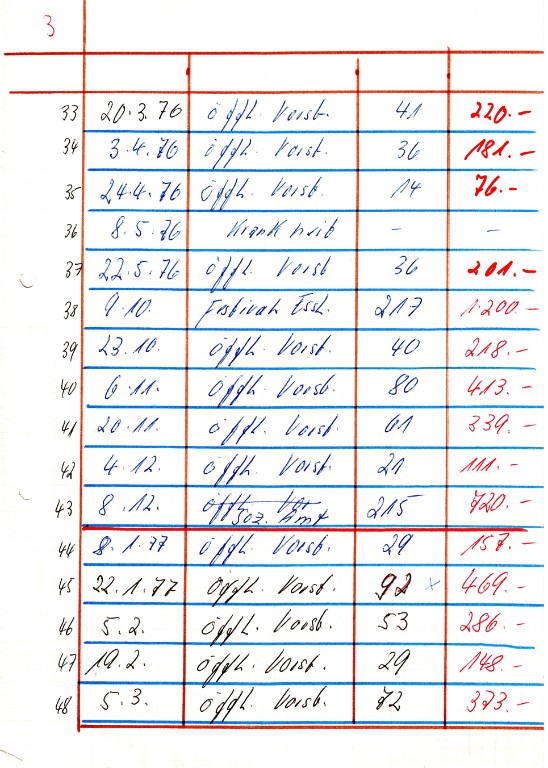 3
33 20.3.76 Öffh. Vorst. 41 220.-
34 3.4.76 Öffh. Vorst. 36 181.-
35 24.4.76 Öffh. Vorst. 14 76.-
36 8.5.76 Krankheit - -
37 22.5.76 Öffh. Vorst 36 201.-
38 9.10. Festival Essl. 217 1.200.-
39 23.10. Öffh. Vorst. 40 218.-
40 6.11. Öffh. Vorst. 80 413.-
41 20.11. Öffh. Vorst. 61 339.-
42 4.12. Öffh. Vorst. 21 111.-
43 8.12. Soz. Amt 215 720.-
44 8.1.77 Öffh. Vorst. 29 157.-
45 22.1.77 Öffh. Vorst. 92 x 469.-
46 5.2. Öffh. Vorst. 53 286.-
47 19.2. Öffh. Vorst. 29 148.-
48 5.3. Öffh. Vorst. 72 373.-